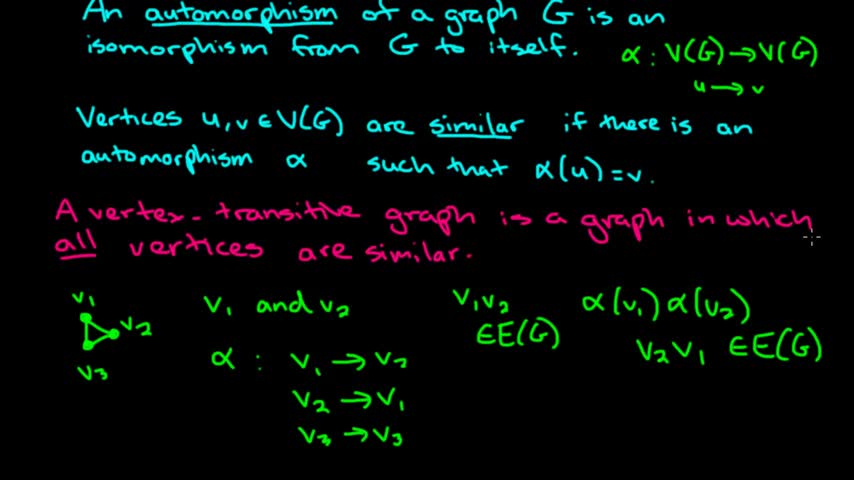 An automorphism of a graph G is an
isomorphism from G to itself.
α : V(G) → V(G)
u → v
Vertices u, v ∈ V(G) are similar if there is an
automorphism α such that α(u) = v.
A vertex-transitive graph is a graph in which
all vertices are similar.
v₁
v₂
v₃
v₁ and v₂
α : v₁ → v₂
v₂ → v₁
v₃ → v₃
v₁v₂
∈E(G)
α(v₁) α(v₂)
v₂v₁ ∈E(G)